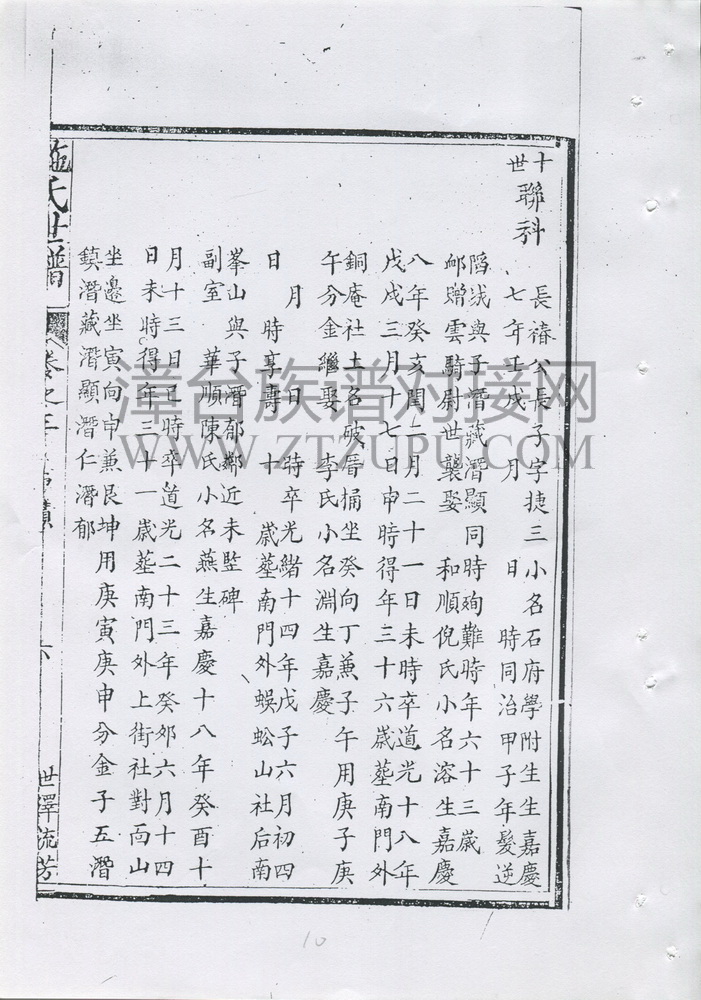 十世
聯科
長椿公長子字捷三小名石府學附生生嘉慶
七年壬戌 月 日 時同治甲子年髮逆
陷漳與子潛藏潛顯同時殉難時年六十三歲
卹贈雲騎尉世襲娶 和順倪氏小名溶生嘉慶
八年癸亥閏二月二十一日未時卒道光十八年
戊戌三月十七日申時得年三十六歲塟南門外
銅庵社土名破厝桶坐癸向丁兼子午用庚子庚
午分金繼娶 李氏小名淵生嘉慶
日 月 日 時卒光緒十四年戊子六月初四
日 時享壽 十 歲塟南門外蜈蚣山社后南
峯山與子潛郁鄰近未監碑
副室 華順陳氏小名燕生嘉慶十八年癸酉十
月十三日巳時卒道光二十三年癸郊六月十四
日未時得年三十一歲塟南門外上街社對面山
坐邊坐寅向申兼艮坤用庚寅庚申分金子五潛
鎮潛藏潛顯潛仁潛郁
施氏世譜
卷之二
世澤流芳
漳台族谱对接网
WWW.ZTZUPU.COM
10